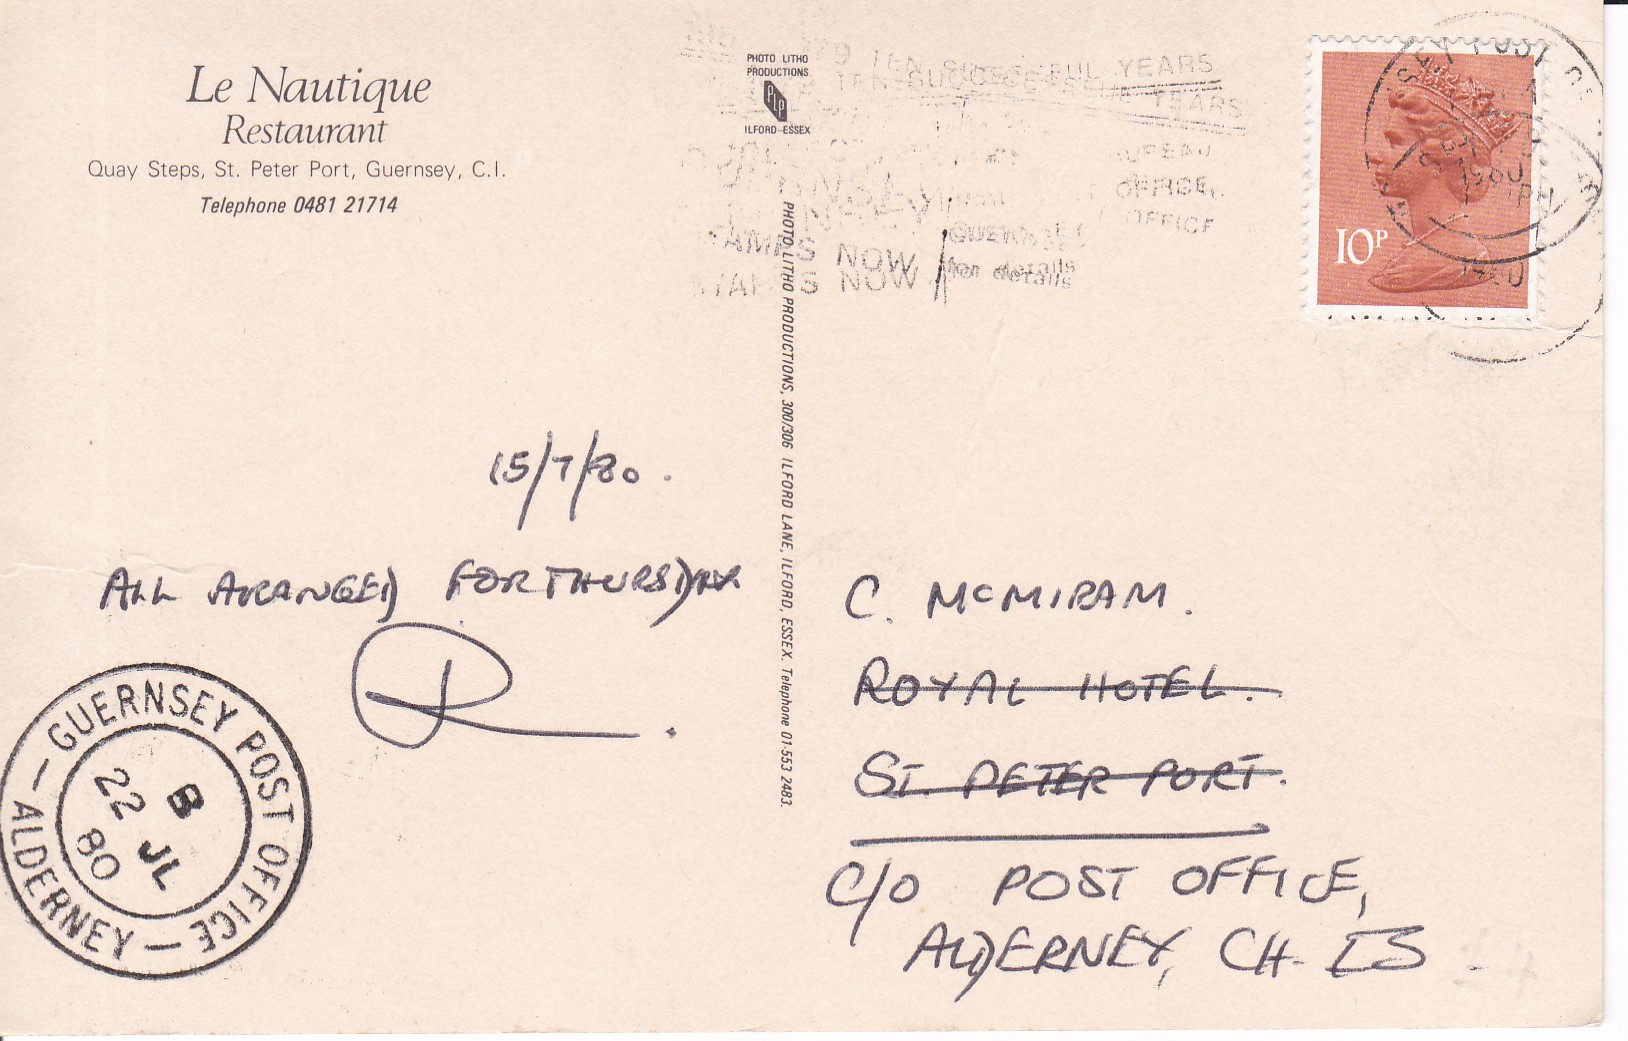 Le Nautique
Restaurant
Quay Steps, St. Peter Port, Guernsey, C.I.
Telephone 0481 21714
PHOTO LITHO
PRODUCTIONS
PLP
ILFORD ESSEX
TEN SUCCESSFUL YEARS
TEN SUCCESSFUL YEARS
BUREAU
OFFICE,
OFFICE
STAMPS NOW
STAMPS NOW
GUERNSEY
for details
for details
10P
POST OF
1980
1980
PHOTO LITHO PRODUCTIONS, 300/306 ILFORD LANE, ILFORD, ESSEX. Telephone 01-553 2483.
15/7/80.
ALL ARANGED FOR THURSDAY
R
GUERNSEY POST OFFICE
ALDERNEY
B
22 JL
80
C. McMIRAM.
ROYAL HOTEL.
ST. PETER PORT.
C/O POST OFFICE,
ALDERNEY, CH. IS